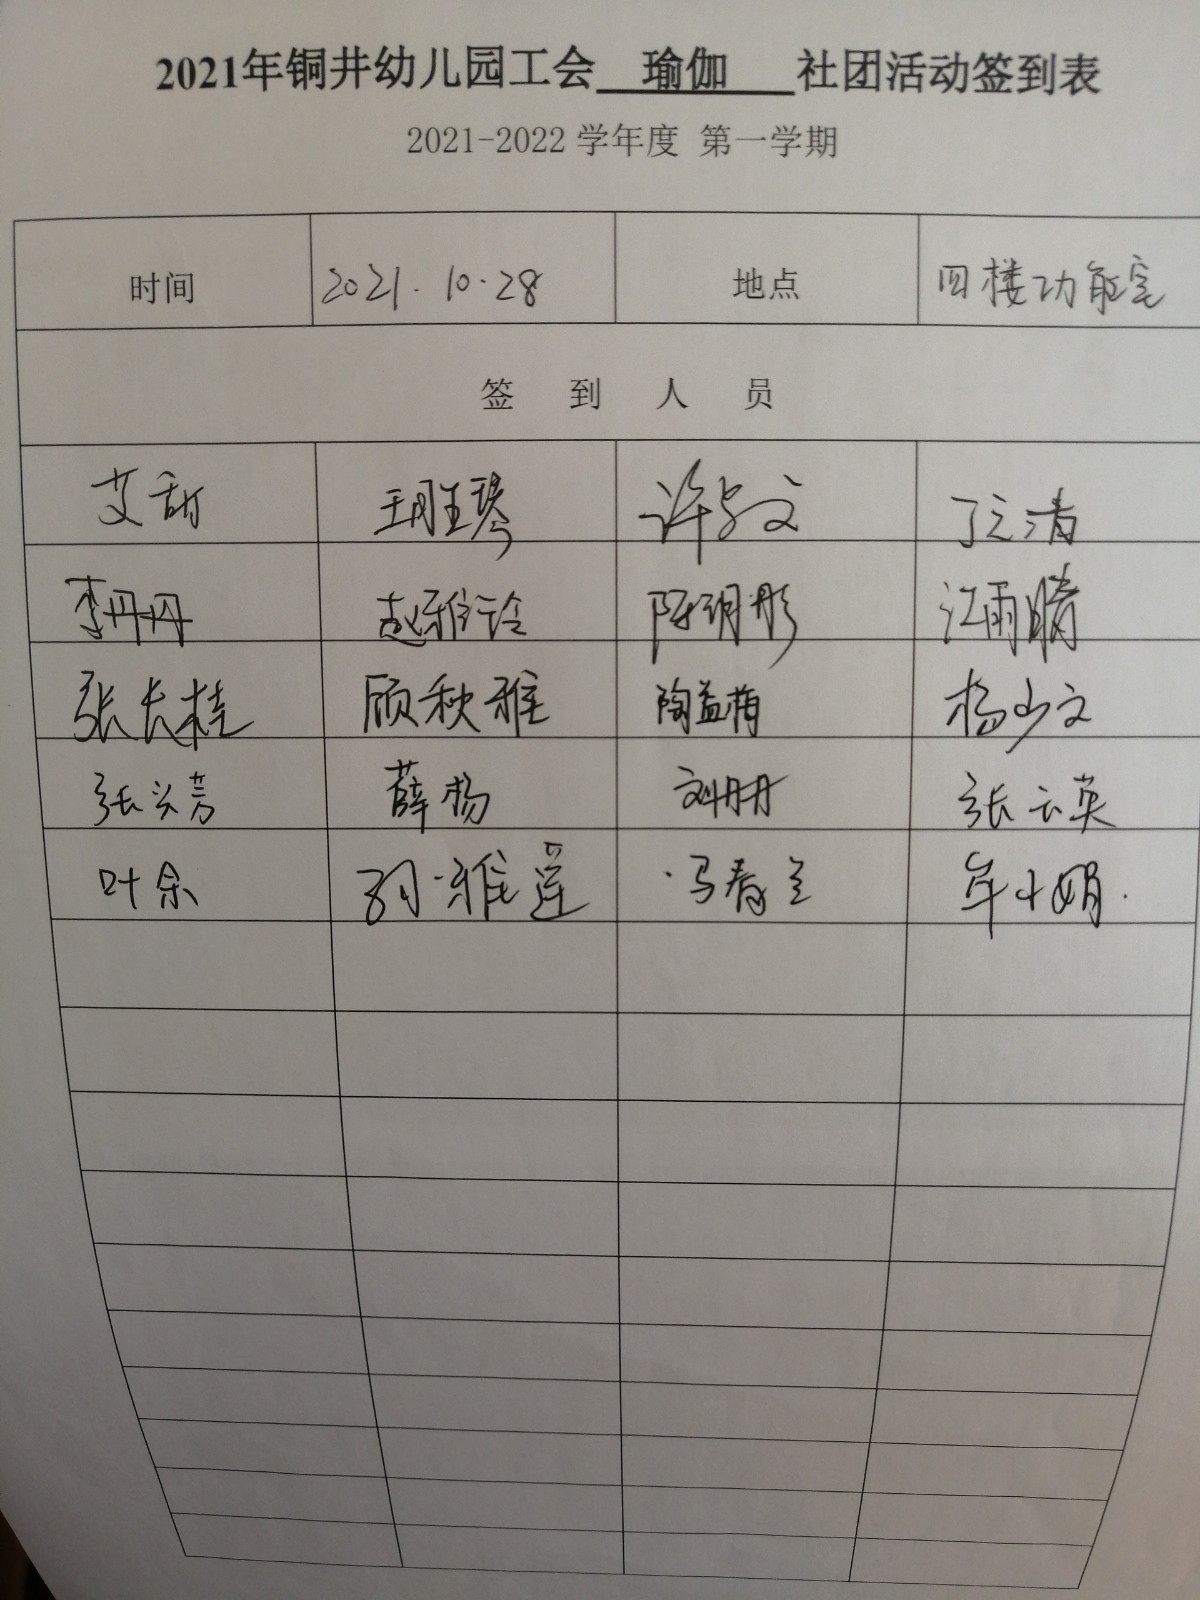 2021年铜井幼儿园工会 瑜伽 社团活动签到表
2021-2022 学年度 第一学期
时间 2021.10.28 地点 四楼功能室
签 到 人 员
艾甜 许 文 丁 清
李丹丹 赵雅 陈玥彤 江雨晴
张长桂 顾秋雅 陶益梅 杨少文
张 芳 薛杨 刘丹丹 张云英
叶余 孙雅莲 马春兰 年小娟